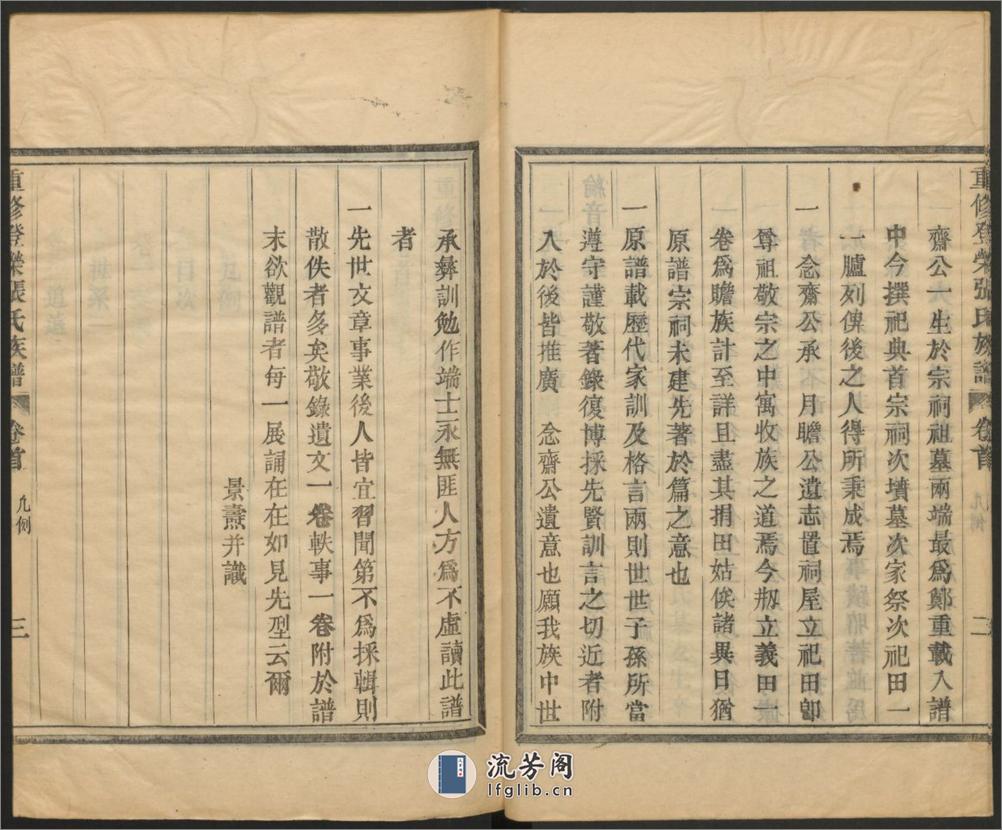 重修登榮張氏族譜 卷首 凡例 二
齋公大生於宗祠祖墓兩端最爲鄭重載入譜
中今撰祀典首宗祠次墳墓次家祭次祀田一
一臚列俾後之人得所秉成焉
一 念齋公承 月瞻公遺志置祠屋立祀田卽
尊祖敬宗之中寓收族之道焉今剏立義田一
卷爲贍族計至詳且盡其捐田姑俟諸異日猶
原譜宗祠未建先著於篇之意也
一原譜載歷代家訓及格言兩則世世子孫所當
遵守謹敬著錄復博採先賢訓言之切近者附
入於後皆推廣 念齋公遺意也願我族中世
承彝訓勉作端士永無匪人方爲不虛讀此譜
者
一先世文章事業後人皆宜習聞第不爲採輯則
散佚者多矣敬錄遺文一卷軼事一卷附於譜
末欲觀譜者每一展誦在在如見先型云爾
景壽并識
重修登榮張氏族譜 卷首 凡例 三
流芳阁
lfglib.cn